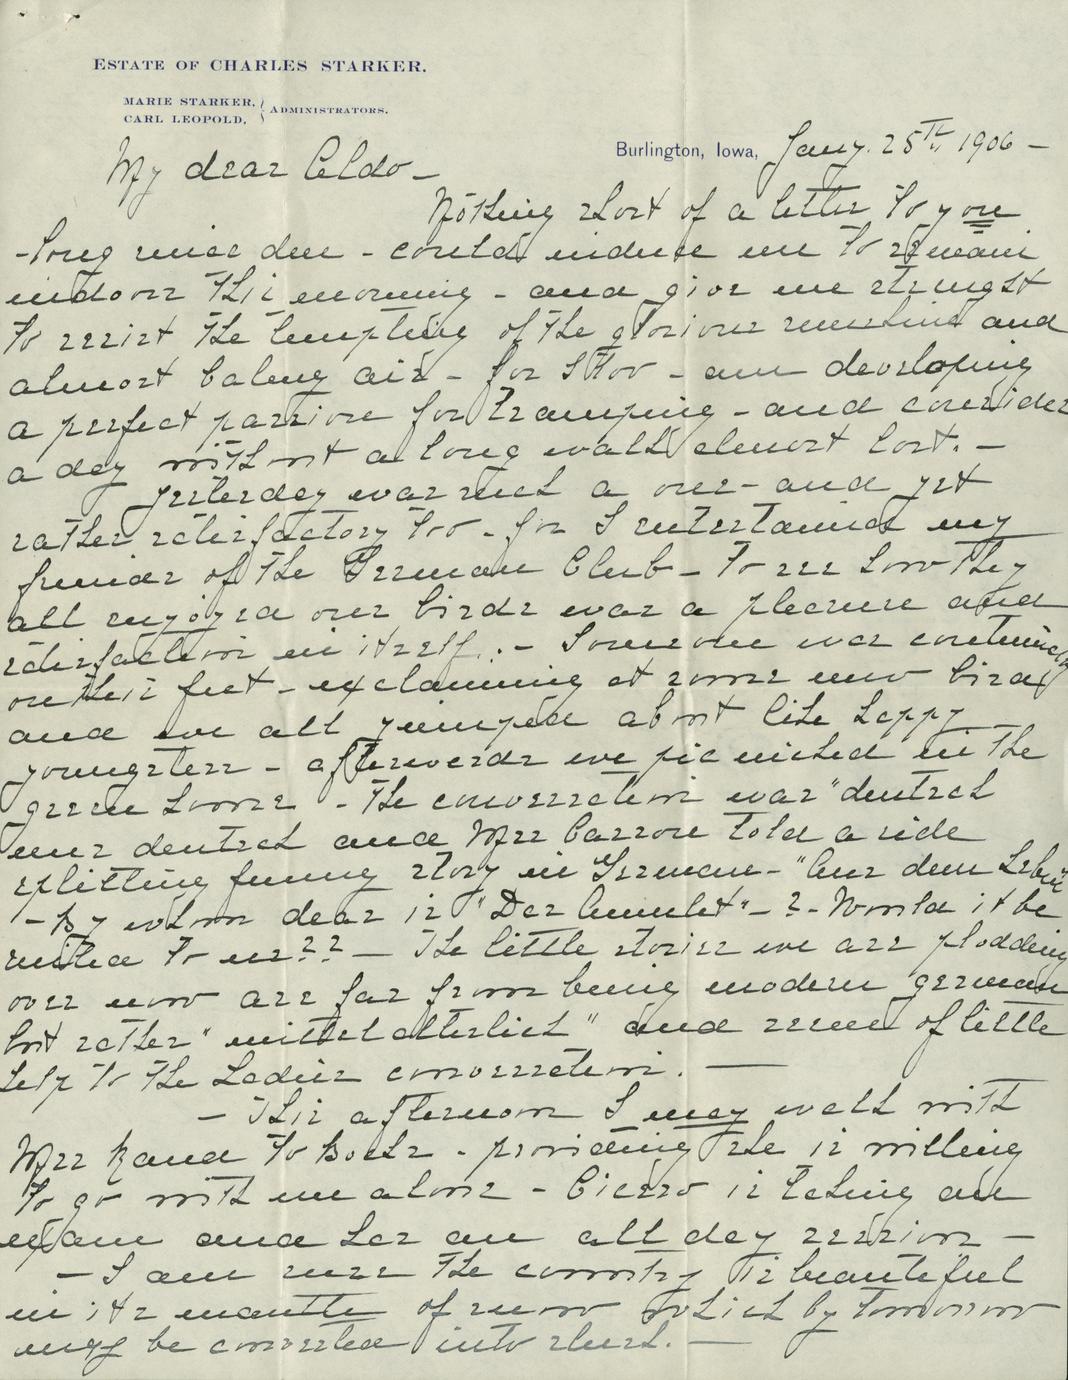 ESTATE OF CHARLES STARKER.
MARIE STARKER,
CARL LEOPOLD,
ADMINISTRATORS.
Burlington, Iowa, Jany. 25TH 1906 -
My dear Aldo -
Nothing short of a letter to you
- long since due - could induce me to remain
indoors this morning - and give me strength
to resist the tempting of the glorious sunshine and
almost balmy air - for I too - am developing
a perfect passion for tramping - and consider
a day without a long walk almost lost. -
Yesterday was such a one - and yet
rather satisfactory too - for I entertained my
friends of the German Club - To see how they
all enjoyed our birds was a pleasure and
satisfaction in itself. - Someone was continually
on their feet - exclaiming at some new bird
and we all jumped about like happy
youngsters - afterwards we pic nicked in the
green house - The conversation was "deutsch
nur deutsch and Mrs Carson told a side
splitting funny story in German - "Aus dem Leben
- By whom dear is "Das Amulet" - ? - Would it be
suited to us?? - The little stories we are plodding
over now are far from being modern german
but rather "mittelalterlich" and seem of little
help to the Ladies conversation. -
- This afternoon I may walk with
Mrs Rand to - providing she is willing
to go with me alone - is taking an
exam and has an all day session -
- I am sure the country is beautiful
in its mantle of snow which by tomorrow
may be converted into slush. -